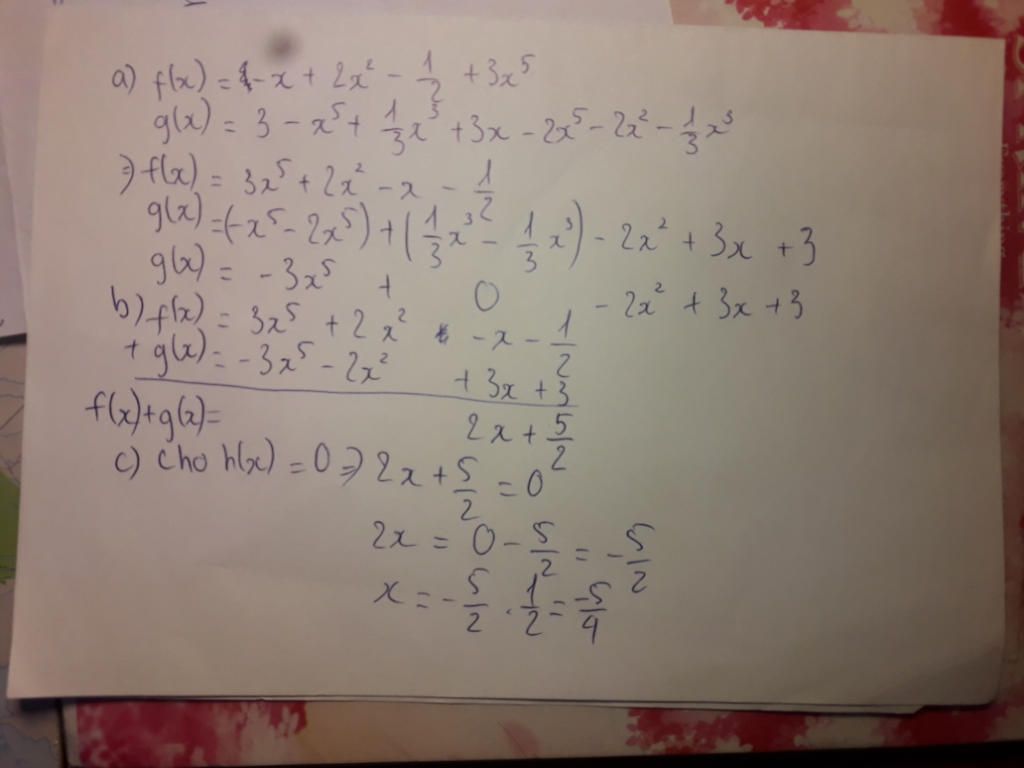 a) f(x) = - x + 2x² - 1/2 + 3x⁵
g(x) = 3 - x⁵ + 1/3 x³ + 3x - 2x⁵ - 2x² - 1/3 x³
⇒ f(x) = 3x⁵ + 2x² - x - 1/2
g(x) = (-x⁵ - 2x⁵) + (1/3 x³ - 1/3 x³) - 2x² + 3x + 3
g(x) = -3x⁵ + 0 - 2x² + 3x + 3
b) f(x) = 3x⁵ + 2x² - x - 1/2
+ g(x) = -3x⁵ - 2x² + 3x + 3
f(x) + g(x) = 2x + 5/2
c) Cho h(x) = 0 ⇒ 2x + 5/2 = 0
2x = 0 - 5/2 = -5/2
x = -5/2 . 1/2 = -5/4